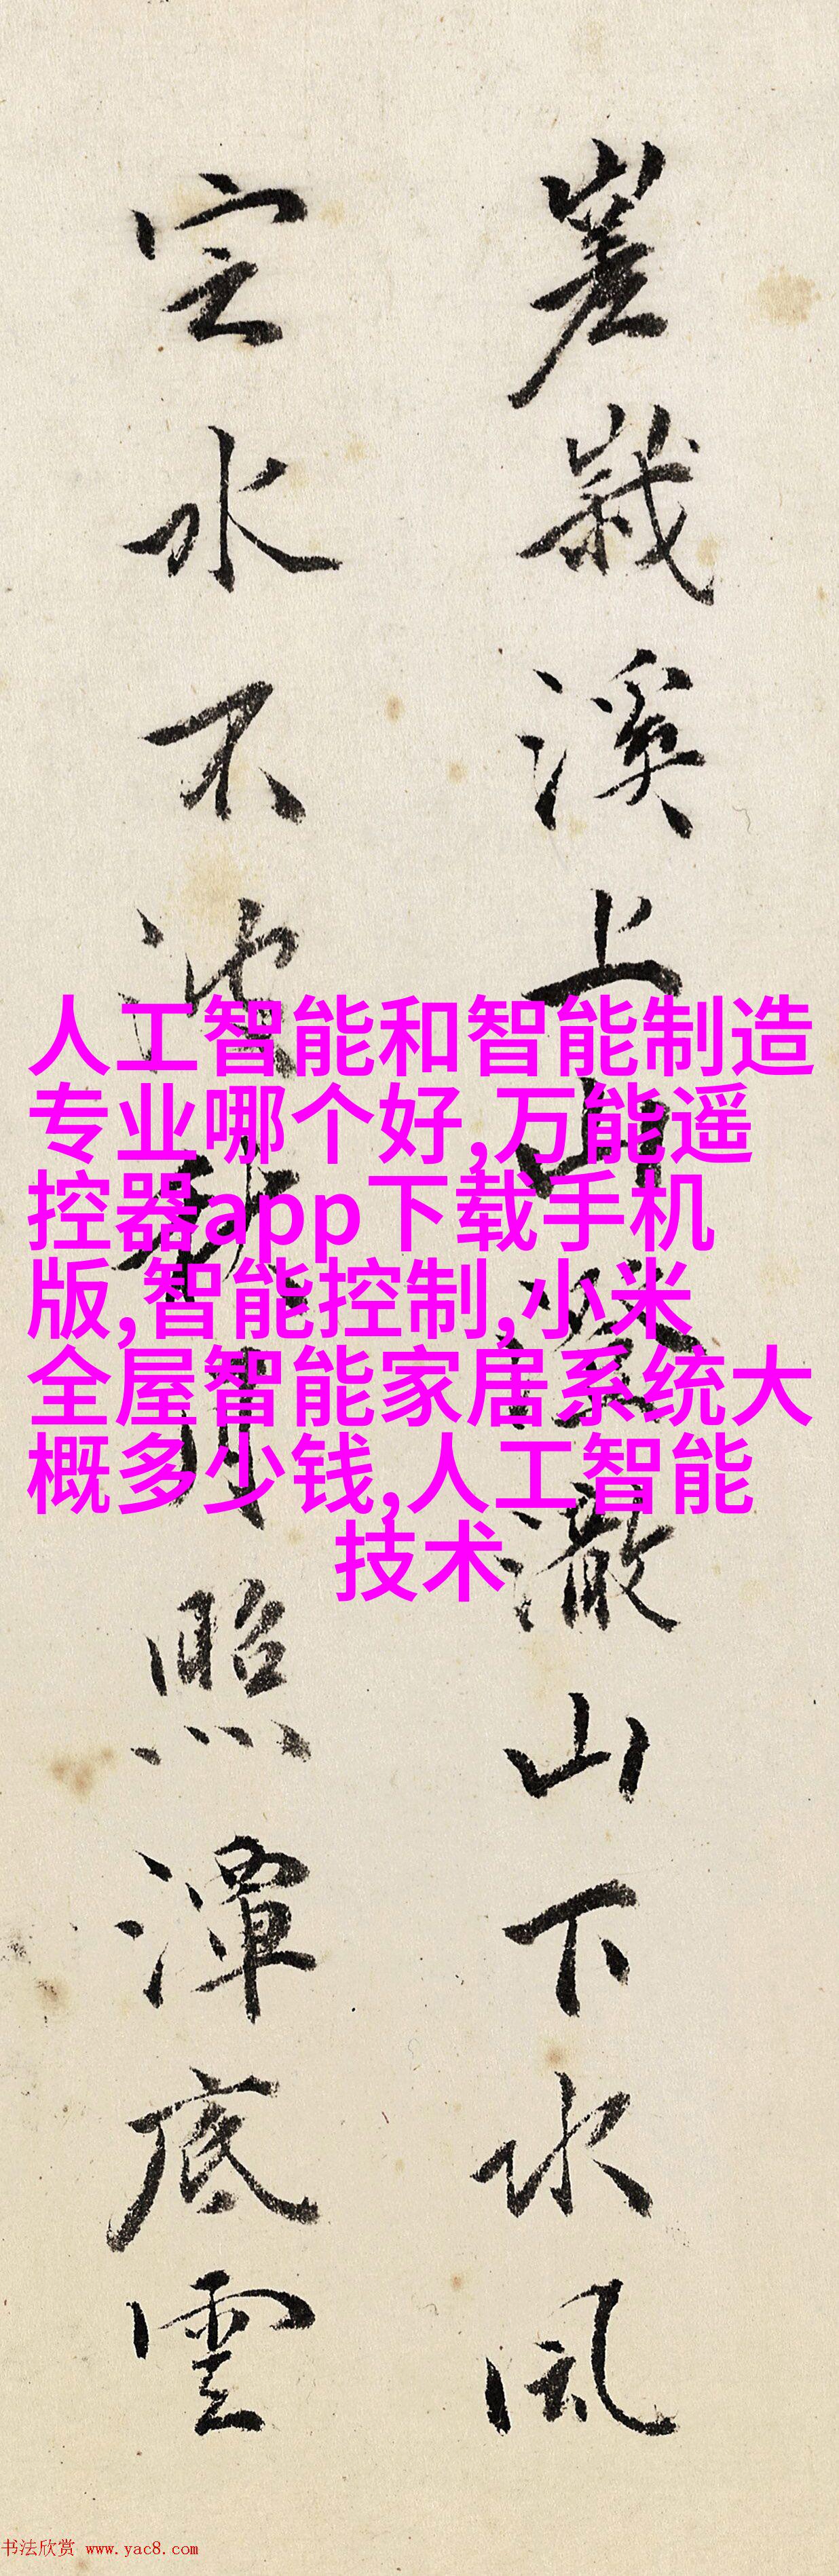 嵳峩溪上山澄澈山下水風
水不秋月照潭底雲
人工智能和智能制造
专业哪个好,万能遥
控器app下载手机
版,智能控制,小米
全屋智能家居系统大
概多少钱,人工智能
技术
书法欣赏 www.yac8.com